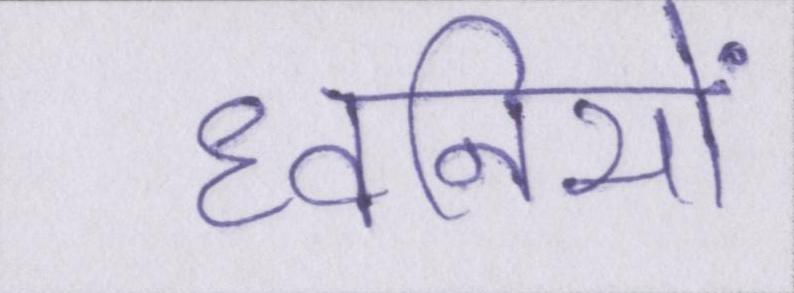 ध्वनियों